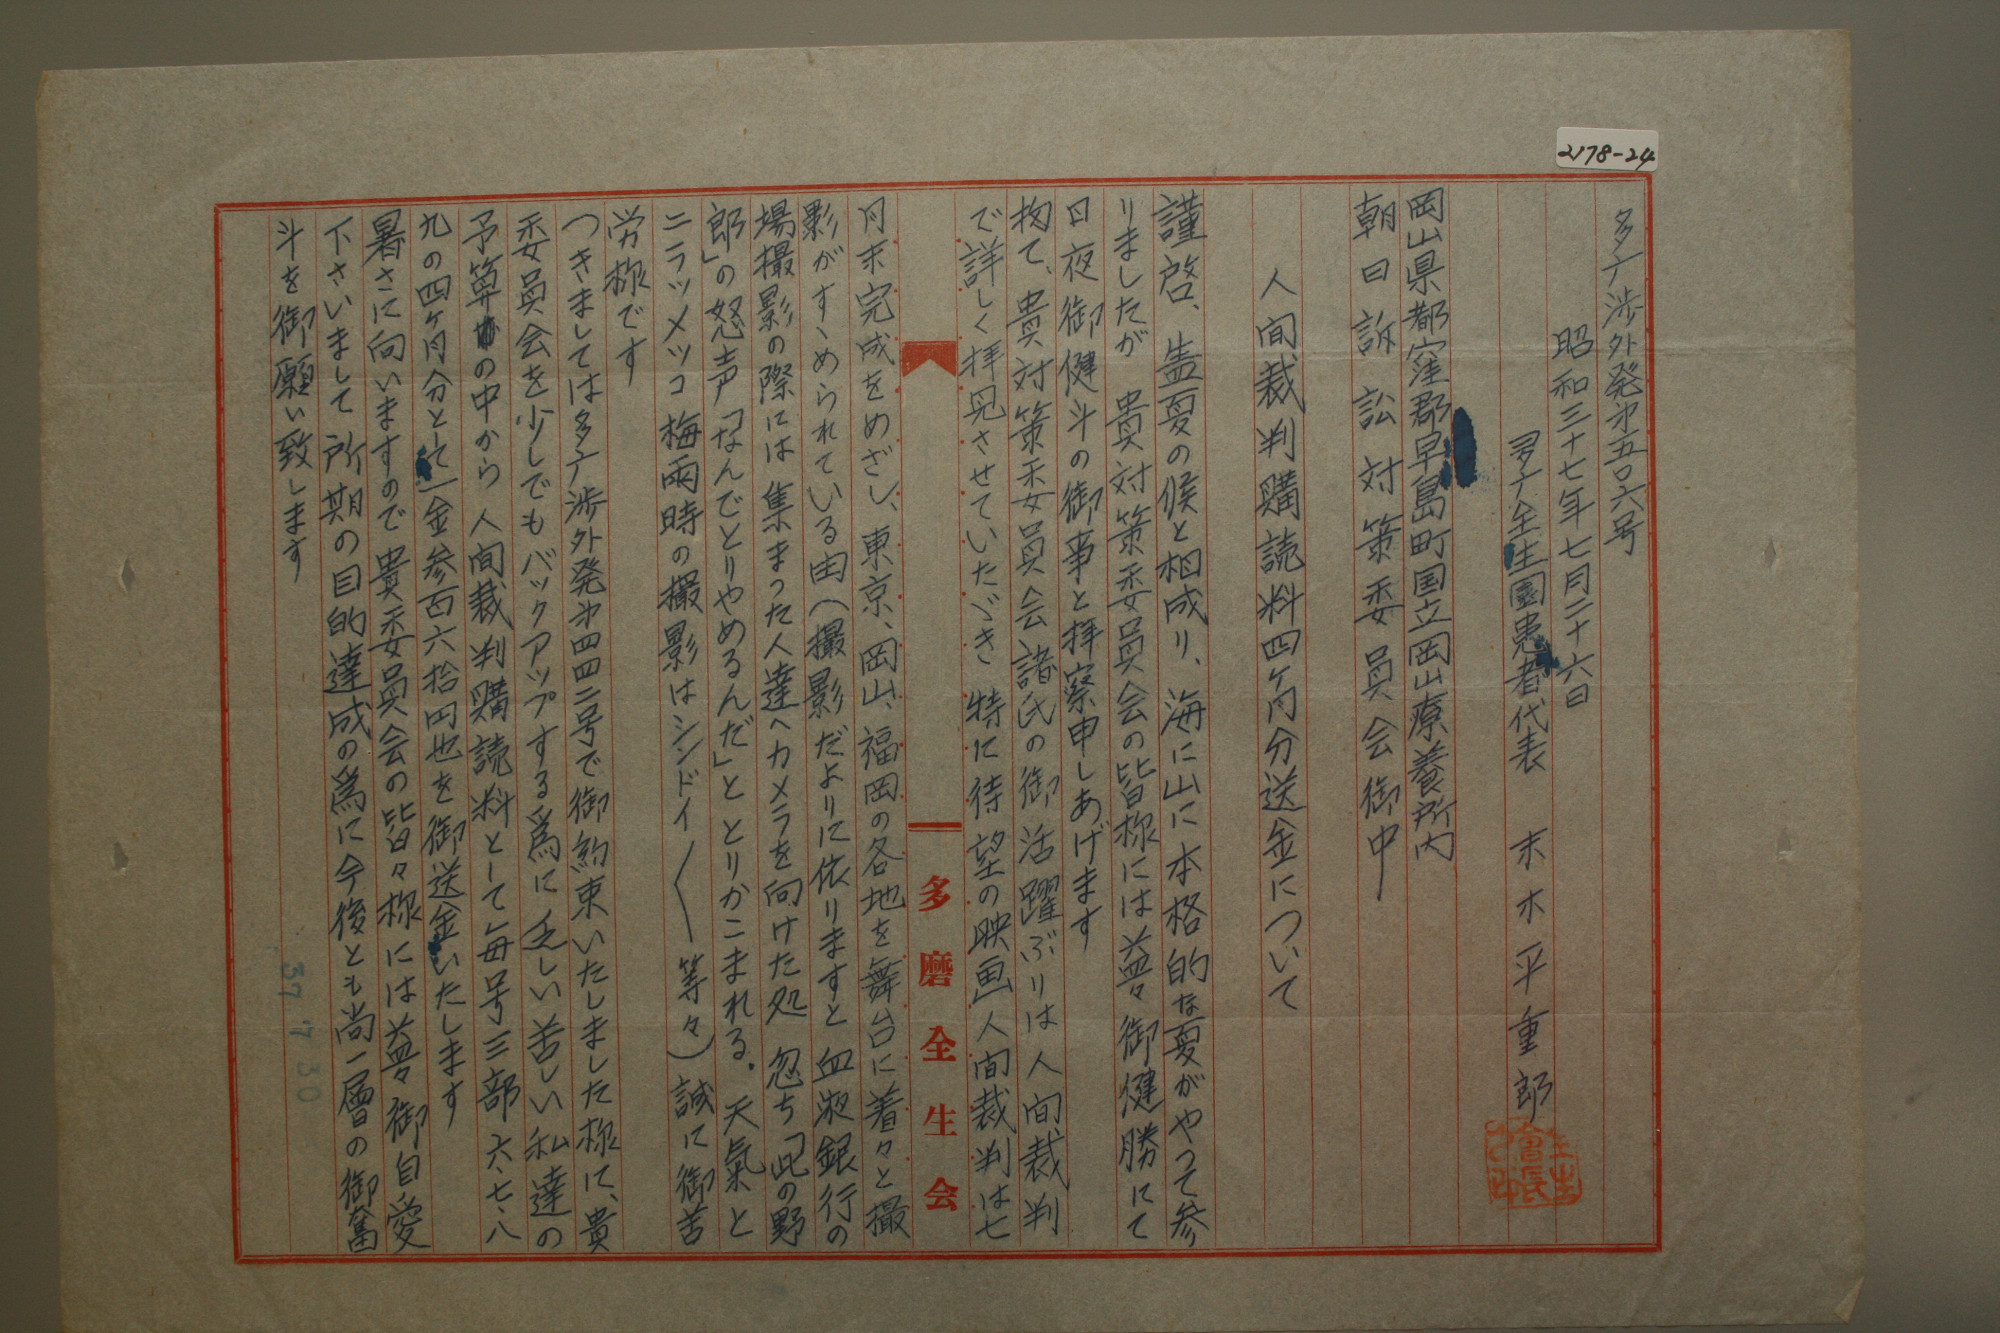 2178-24
多广渉外発㐧五〇六号
昭和三十七年七月二十六日
多广全生園患者代表　末木平重郎
岡山県都窪郡早島町国立岡山療養所内
朝日訴訟対策委員会御中
人間裁判購読料四ヶ月分送金について
謹啓、盛夏の候と相成り、海に山に本格的な夏がやって参
りましたが　貴対策委員会の皆様には益々御健勝にて
日夜御健斗の御事と拝察申しあげます
扨て、貴対策委員会諸氏の御活躍ぶりは人間裁判
で詳しく拝見させていたゞき　特に待望の映画人間裁判は七
月末完成をめざし、東京、岡山、福岡の各地を舞台に着々と撮
影がすゝめられている由（撮影だよりに依りますと　血液銀行の
場撮影の際には集まった人達へカメラを向けた処　忽ち「此の野
郎」の怒声「なんでとりやめるんだ」ととりかこまれる。天気と
ニラッメッコ　梅雨時の撮影はシンドイ〳〵　等々）誠に御苦
労様です
つきましては多广渉外発㐧四四二号で御約束いたしました様に、貴
委員会を少しでもバックアップする為に　乏しい苦しい私達の
予算の中から　人間裁判購読料として毎号三部六、七、八
九の四ヶ月分として一金参百六拾円也を御送金いたします
暑さに向いますので貴委員会の皆々様には益々御自愛
下さいまして　所期の目的達成の為に今後とも尚一層の御奮
斗を御願い致します
多磨全生会
37 7 30